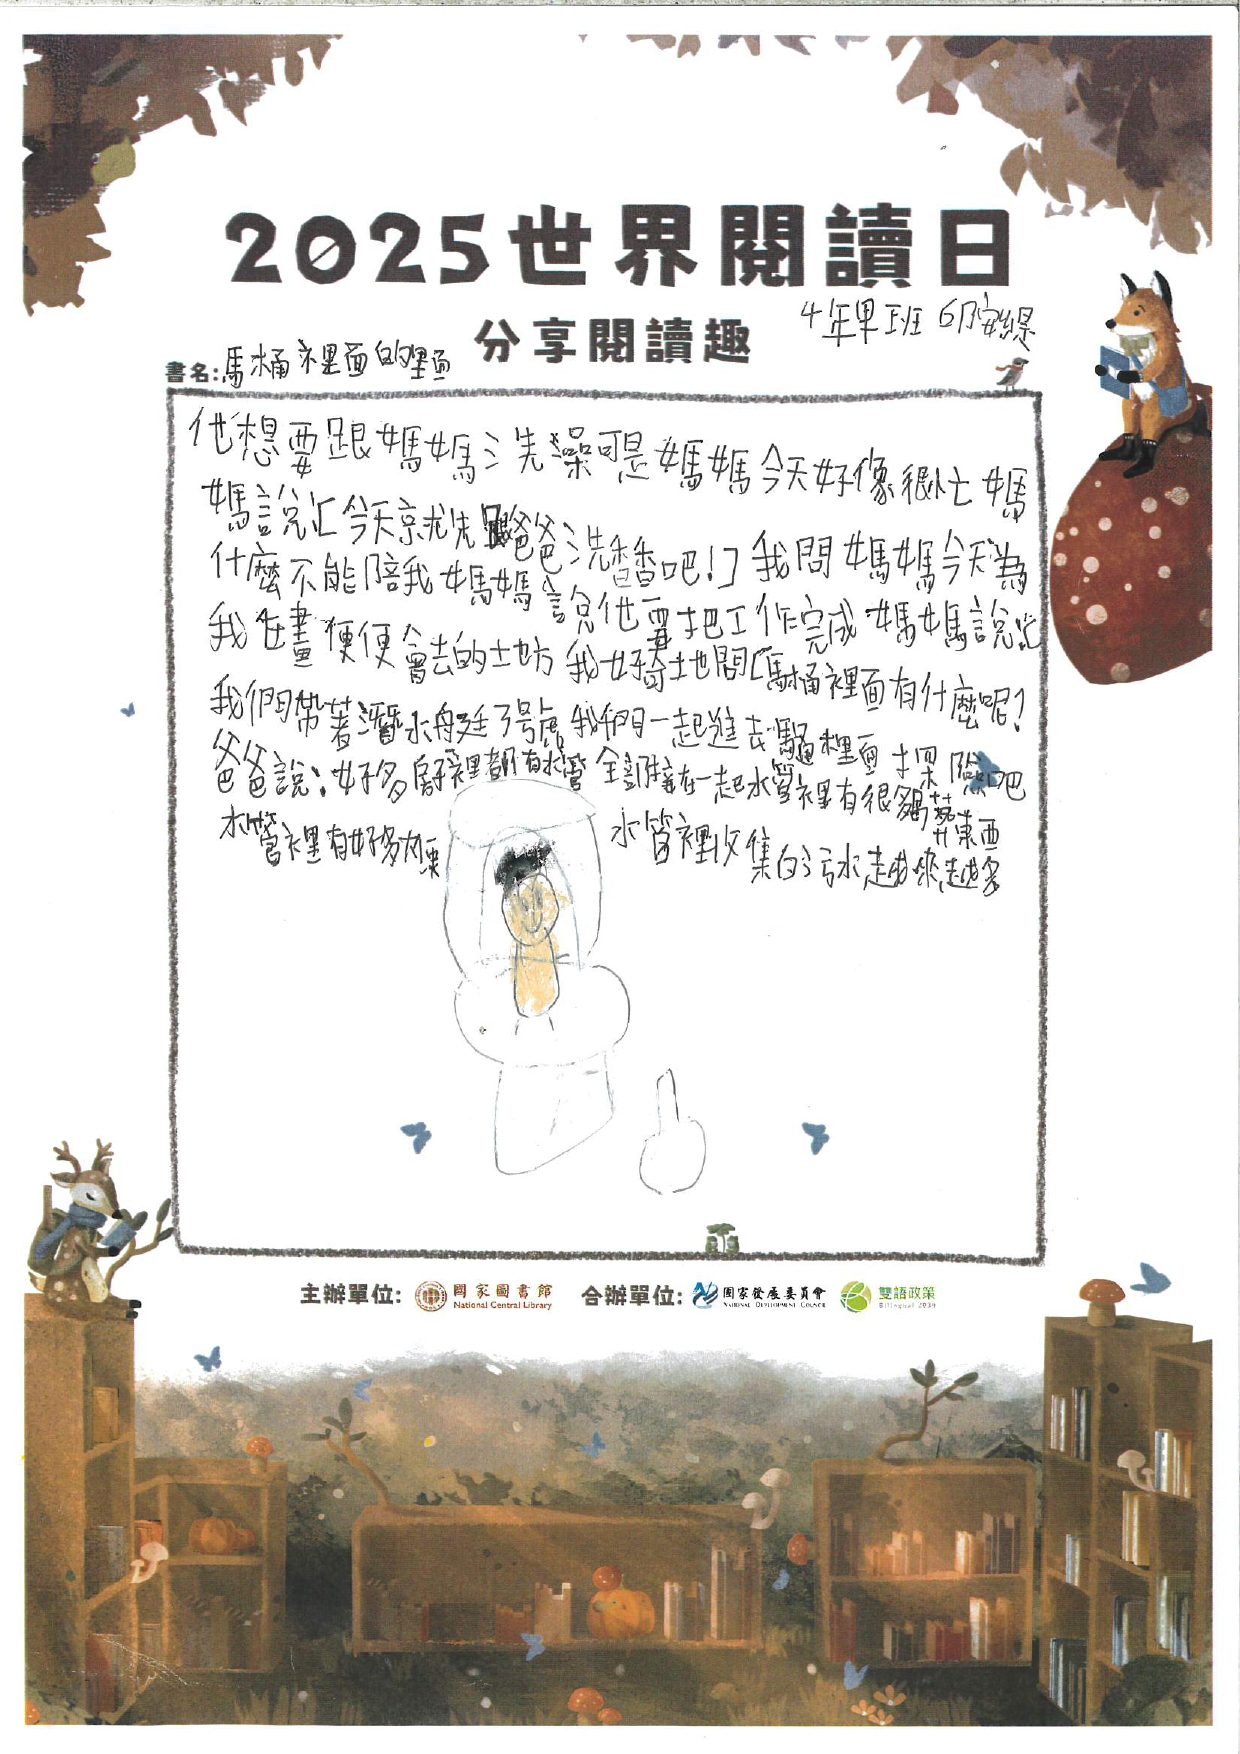 2025世界閱讀日
分享閱讀趣
4年甲班
書名:馬桶裡面的裡面
他想要跟媽媽洗澡可是媽媽今天好像很忙媽
媽說「今天就先跟爸爸洗香香吧!」我問媽媽今天為
什麼不能陪我媽媽說他要把工作完成媽媽說
我在畫便便會去的地方我好奇地問「馬桶裡面有什麼呢?
我們帶著潛水舟廷了號 我們一起進去 裡面探險吧
爸爸說:好多房子裡都有水管全部 在一起水管裡有很多 東西
水管裡有好多 水管裡收集的污水越來越多
主辦單位: 國家圖書館 National Central Library 合辦單位: 國家發展委員會 NATIONAL DEVELOPMENT COUNCIL 雙語政策 Bilingual 2030